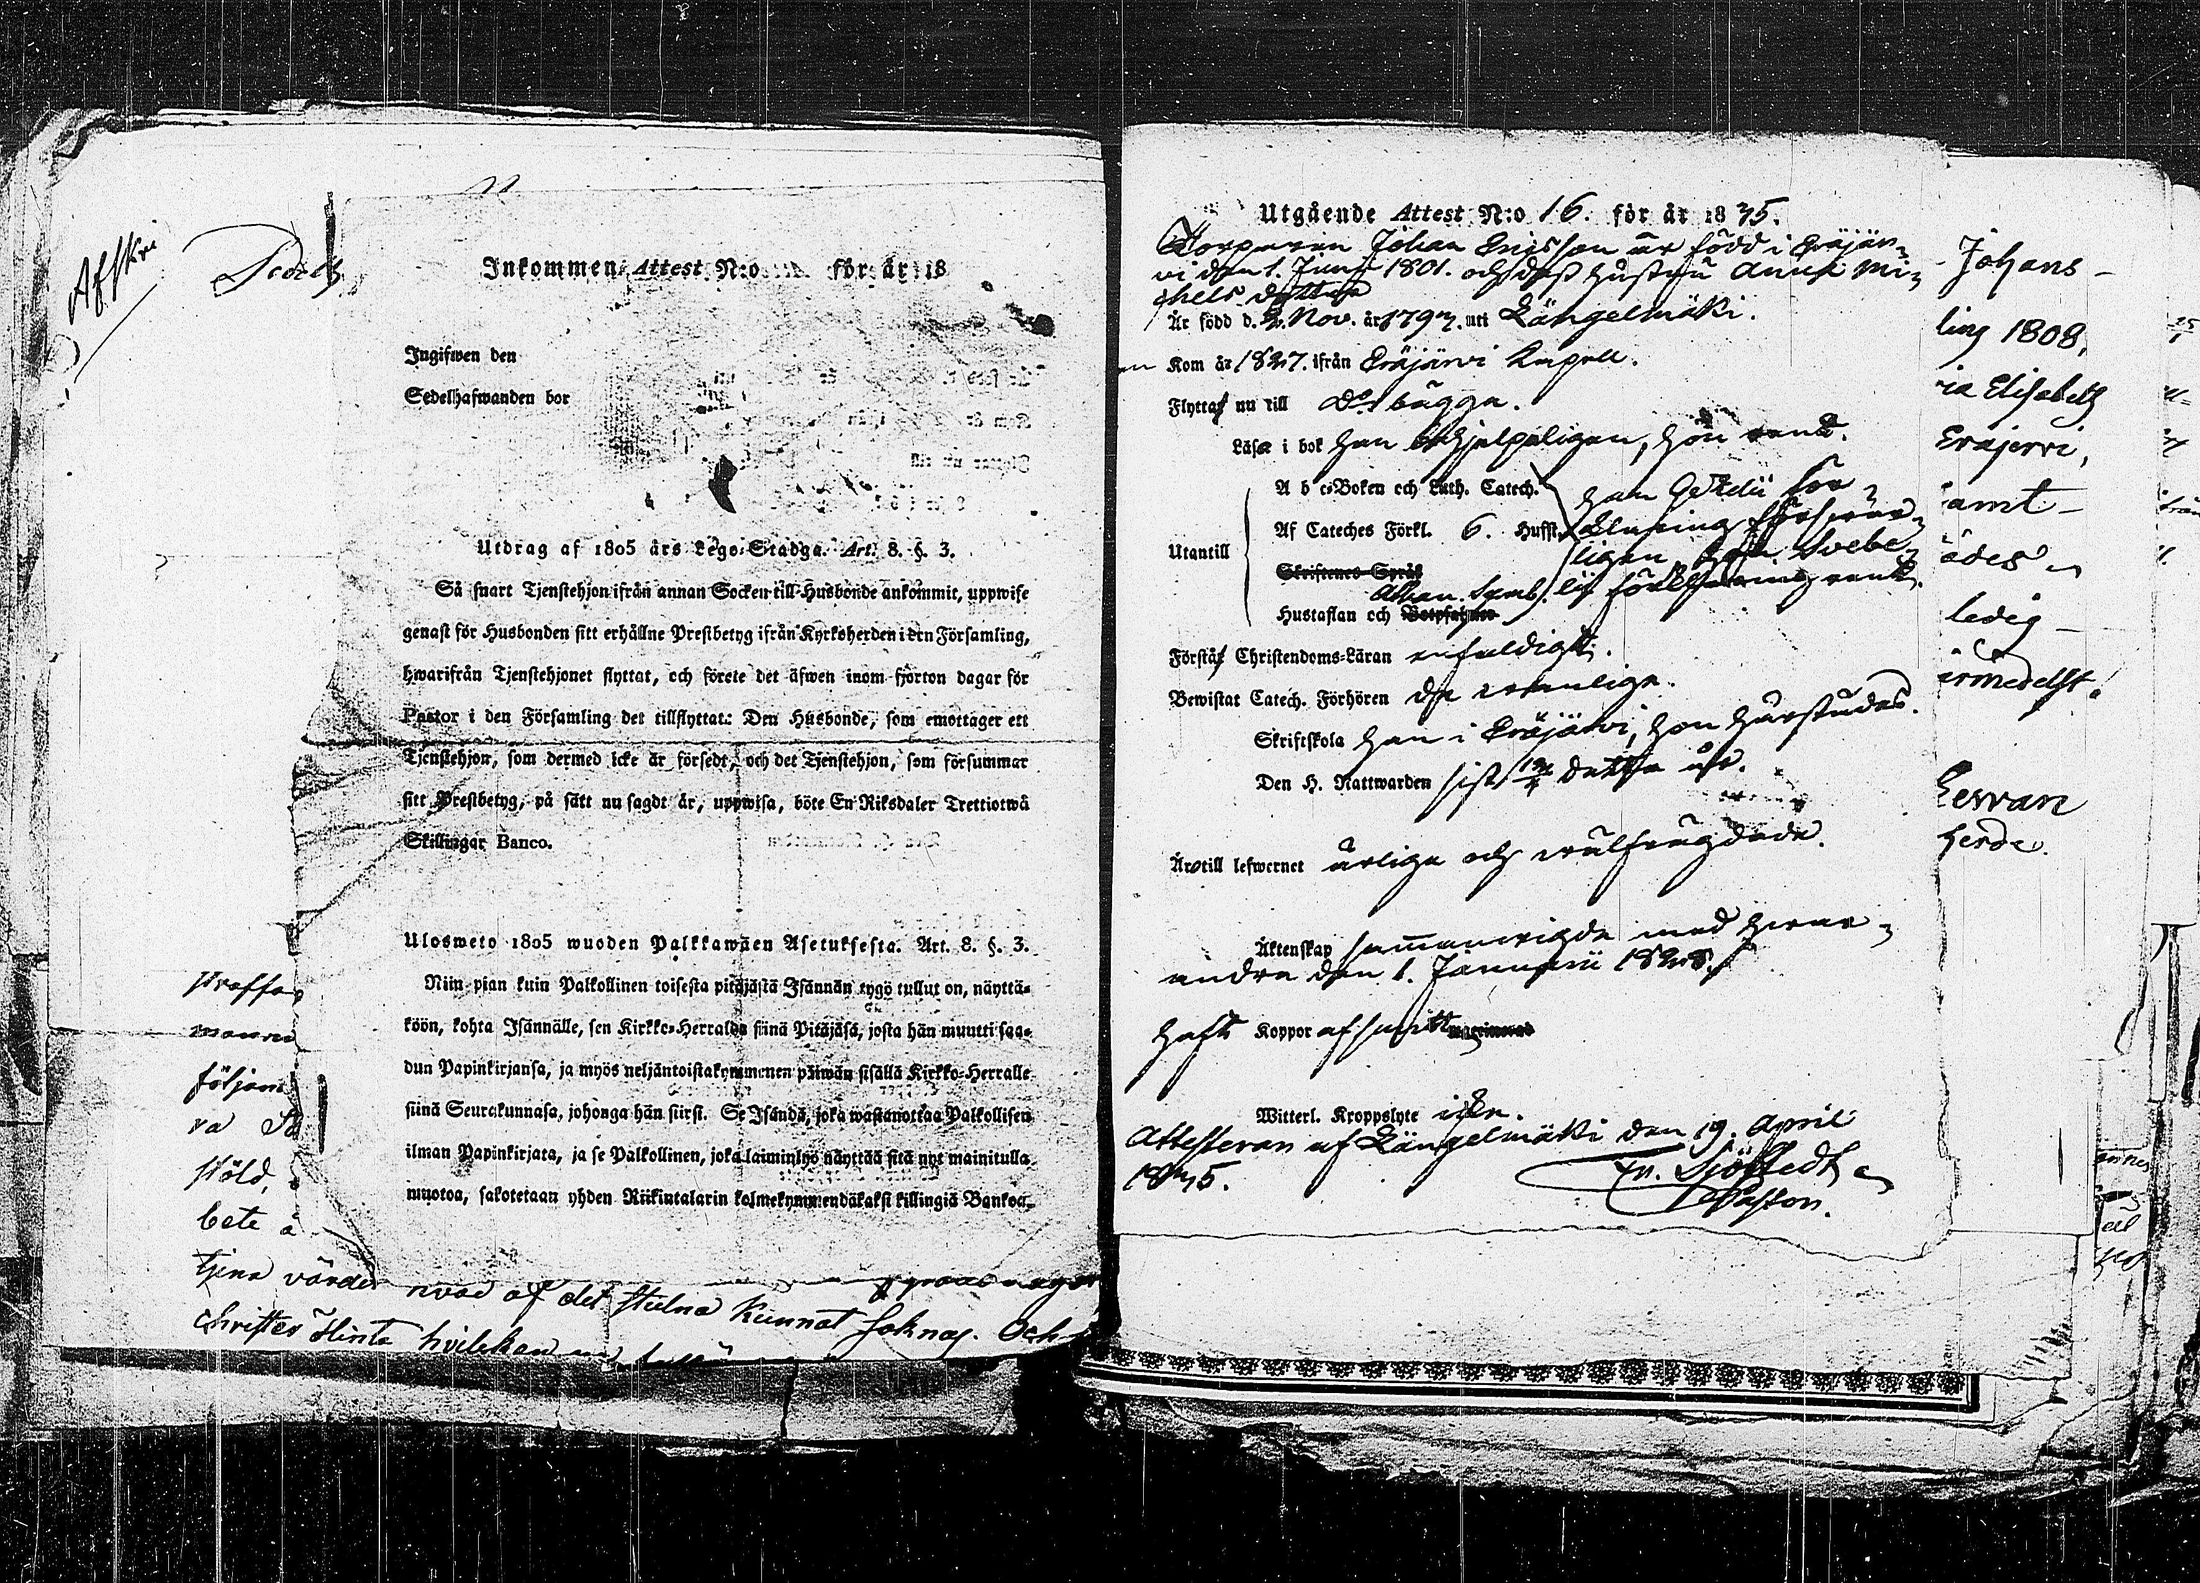 Afskri
Inkommen Attest N:o för år 18
Ingifwen den
Sedelhafwanden bor
Utdrag af 1805 års Lego-Stadga. Art. 8. §. 3.
Så snart Tjenstehjon ifrån annan Socken till Husbonde ankommit, uppwise
genast för Husbonden sitt erhållne Prestbetyg ifrån Kyrkoherden i den Församling,
hwarifrån Tjenstehjonet flyttat, och förete det äfwen inom fjorton dagar för
Pastor i den Församling det tillflyttat: Den Husbonde, som emottager ett
Tjenstehjon, som dermed icke är försedt, och det Tjenstehjon, som försummar
sitt Prestbetyg, på sätt nu sagdt är, uppwisa, böte En Riksdaler Trettiotwå
Skillingar Banco.
Ulosweto 1805 wuoden Palkkawäen Asetuksesta. Art. 8. §. 3.
Niin pian kuin Palkollinen toisesta pitäjästä Isännän tygö tullut on, näyttä-
köön, kohta Isännälle, sen Kirkko-Herralda siinä Pitäjäsä, josta hän muutti saa-
dun Papinkirjansa, ja myös neljäntoistakymmenen päiwän sisällä Kirkko-Herralle
siinä Seurakunnasa, johonga hän siirsi. Se Isändä, joka wastanottaa Palkollisen
ilman Papinkirjata, ja se Palkollinen, joka laiminlyö näyttää sitä nyt mainitulla
muotoa, sakotetaan yhden Riikintalarin kolmekymmendäkaksi killingiä Bankoa.
straffa
följan
va
stöld,
bete å
tjena värde hvad af det stulna kunnat saknas. Och
christer Hinta hvilken
Utgående Attest N:o 16. för år 1835.
Torparen Johan Ericsson är född i Eräjär-
vi den 1. Junii 1801. och dess hustru Anna Mi-
chels dotter
Är född d. 2. Nov. år 1797. uti Längelmäki.
Kom år 1827. ifrån Eräjärvi Kapell.
Flytta nu till D:o bägge.
Läser i bok han behjelpeligen, hon rent.
A b c-Boken och Luth. Catech.
Af Cateches Förkl. 6. Hufst.
Utantill
Skriftenes Språk
Athan. Symb.
Hustaflan och Botpsalmer
han Gezelii för-
klaring försvar-
ligen hon Svebe-
lii förklaring rent.
Förstå Christendoms-Läran enfaldigt.
Bewistat Catech. Förhören de vanliga.
Skriftskola han i Eräjärvi, hon härstädes.
Den H. Nattwarden sist detta år.
Äro till lefwernet ärliga och välfrägdade.
Äktenskap sammanvigde med hvar-
andra den 1. Januarii 1828.
haft Koppor
Witterl. Kroppslyte icke.
Attesteras af Längelmäki den 19. April
1835.
Sjöstedt
Pastor.
Johans-
ling 1808,
ria Elisabeth
Erajervi,
samt
ledig
ärmedelst.
herde.